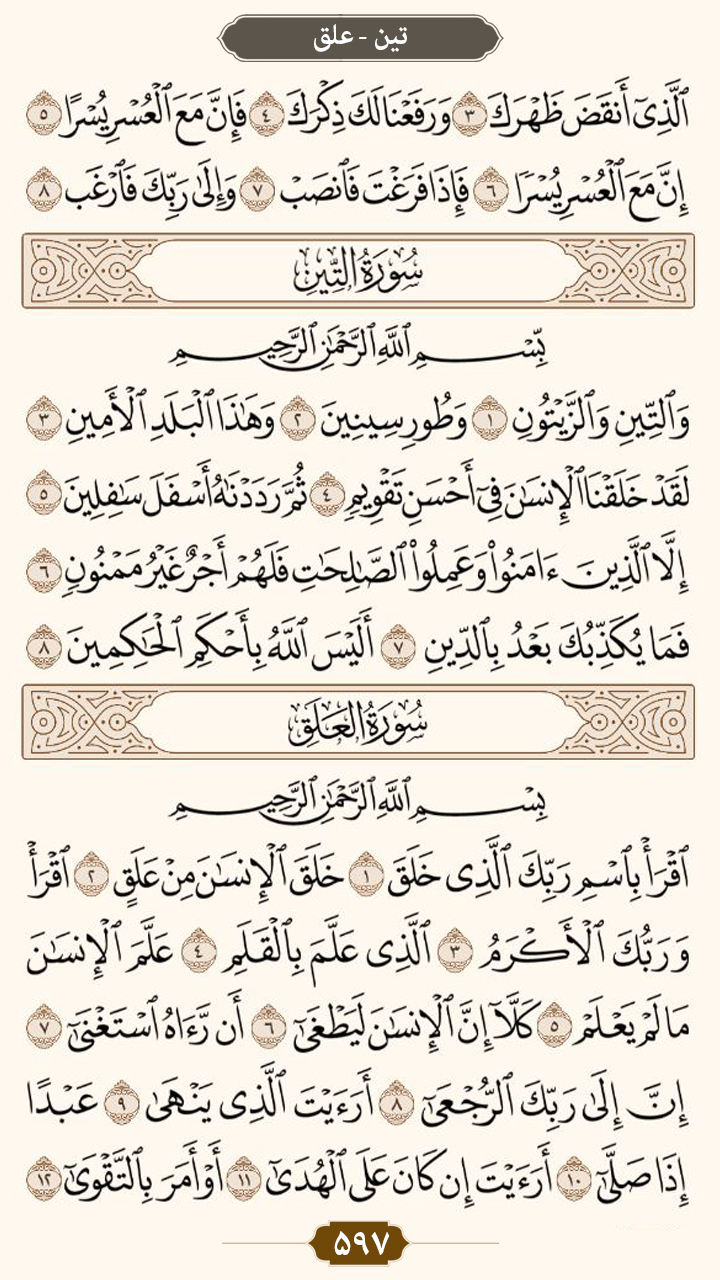 تین - علق
ٱلَّذِىٓ أَنقَضَ ظَهْرَكَ ٣ وَرَفَعْنَا لَكَ ذِكْرَكَ ٤ فَإِنَّ مَعَ ٱلْعُسْرِ يُسْرًا ٥
إِنَّ مَعَ ٱلْعُسْرِ يُسْرًا ٦ فَإِذَا فَرَغْتَ فَٱنصَبْ ٧ وَإِلَىٰ رَبِّكَ فَٱرْغَب ٨
سُورَةُ التِّينِ
بِّسْمِ ٱللَّهِ ٱلرَّحْمَٰنِ ٱلرَّحِيمِ
وَٱلتِّينِ وَٱلزَّيْتُونِ ١ وَطُورِ سِينِينَ ٢ وَهَٰذَا ٱلْبَلَدِ ٱلْأَمِينِ ٣
لَقَدْ خَلَقْنَا ٱلْإِنسَٰنَ فِىٓ أَحْسَنِ تَقْوِيمٍ ٤ ثُمَّ رَدَدْنَٰهُ أَسْفَلَ سَٰفِلِينَ ٥
إِلَّا ٱلَّذِينَ ءَامَنُوا۟ وَعَمِلُوا۟ ٱلصَّٰلِحَٰتِ فَلَهُمْ أَجْرٌ غَيْرُ مَمْنُونٍ ٦
فَمَا يُكَذِّبُكَ بَعْدُ بِٱلدِّينِ ٧ أَلَيْسَ ٱللَّهُ بِأَحْكَمِ ٱلْحَٰكِمِينَ ٨
سُورَةُ العَلَقِ
بِسْمِ ٱللَّهِ ٱلرَّحْمَٰنِ ٱلرَّحِيمِ
ٱقْرَأْ بِٱسْمِ رَبِّكَ ٱلَّذِى خَلَقَ ١ خَلَقَ ٱلْإِنسَٰنَ مِنْ عَلَقٍ ٢ ٱقْرَأْ
وَرَبُّكَ ٱلْأَكْرَمُ ٣ ٱلَّذِى عَلَّمَ بِٱلْقَلَمِ ٤ عَلَّمَ ٱلْإِنسَٰنَ
مَا لَمْ يَعْلَمْ ٥ كَلَّآ إِنَّ ٱلْإِنسَٰنَ لَيَطْغَىٰٓ ٦ أَن رَّءَاهُ ٱسْتَغْنَىٰٓ ٧
إِنَّ إِلَىٰ رَبِّكَ ٱلرُّجْعَىٰٓ ٨ أَرَءَيْتَ ٱلَّذِى يَنْهَىٰ ٩ عَبْدًا
إِذَا صَلَّىٰٓ ١٠ أَرَءَيْتَ إِن كَانَ عَلَى ٱلْهُدَىٰٓ ١١ أَوْ أَمَرَ بِٱلتَّقْوَىٰٓ ١٢
۵۹۷